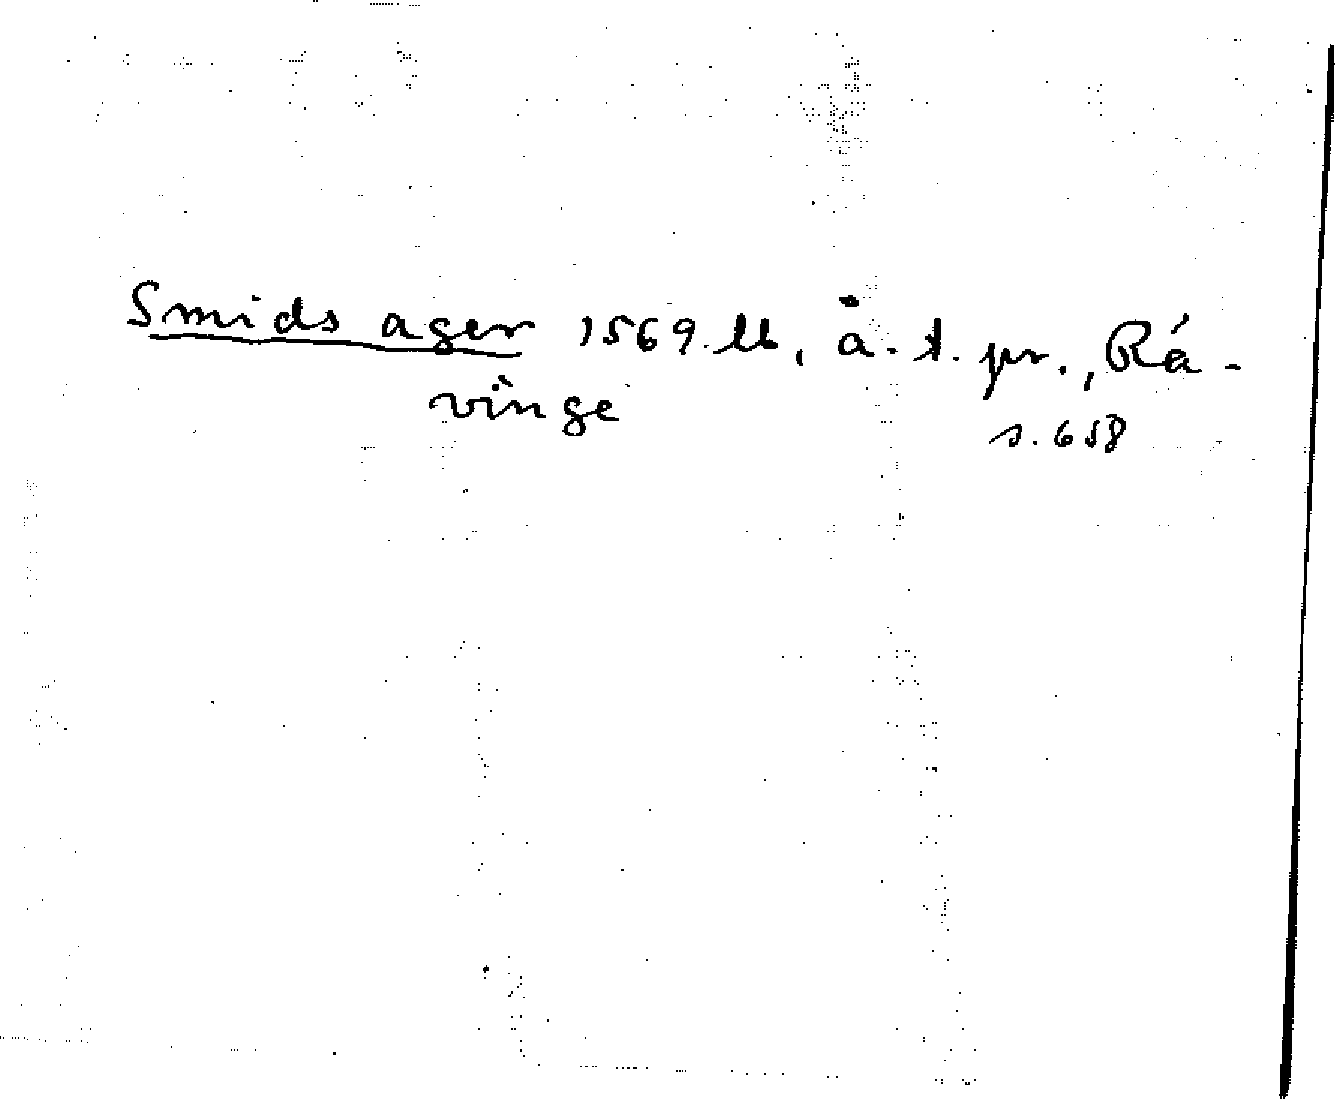 Smids ager 1569 lb, å. t. pr., Rá-
vinge
s. 658